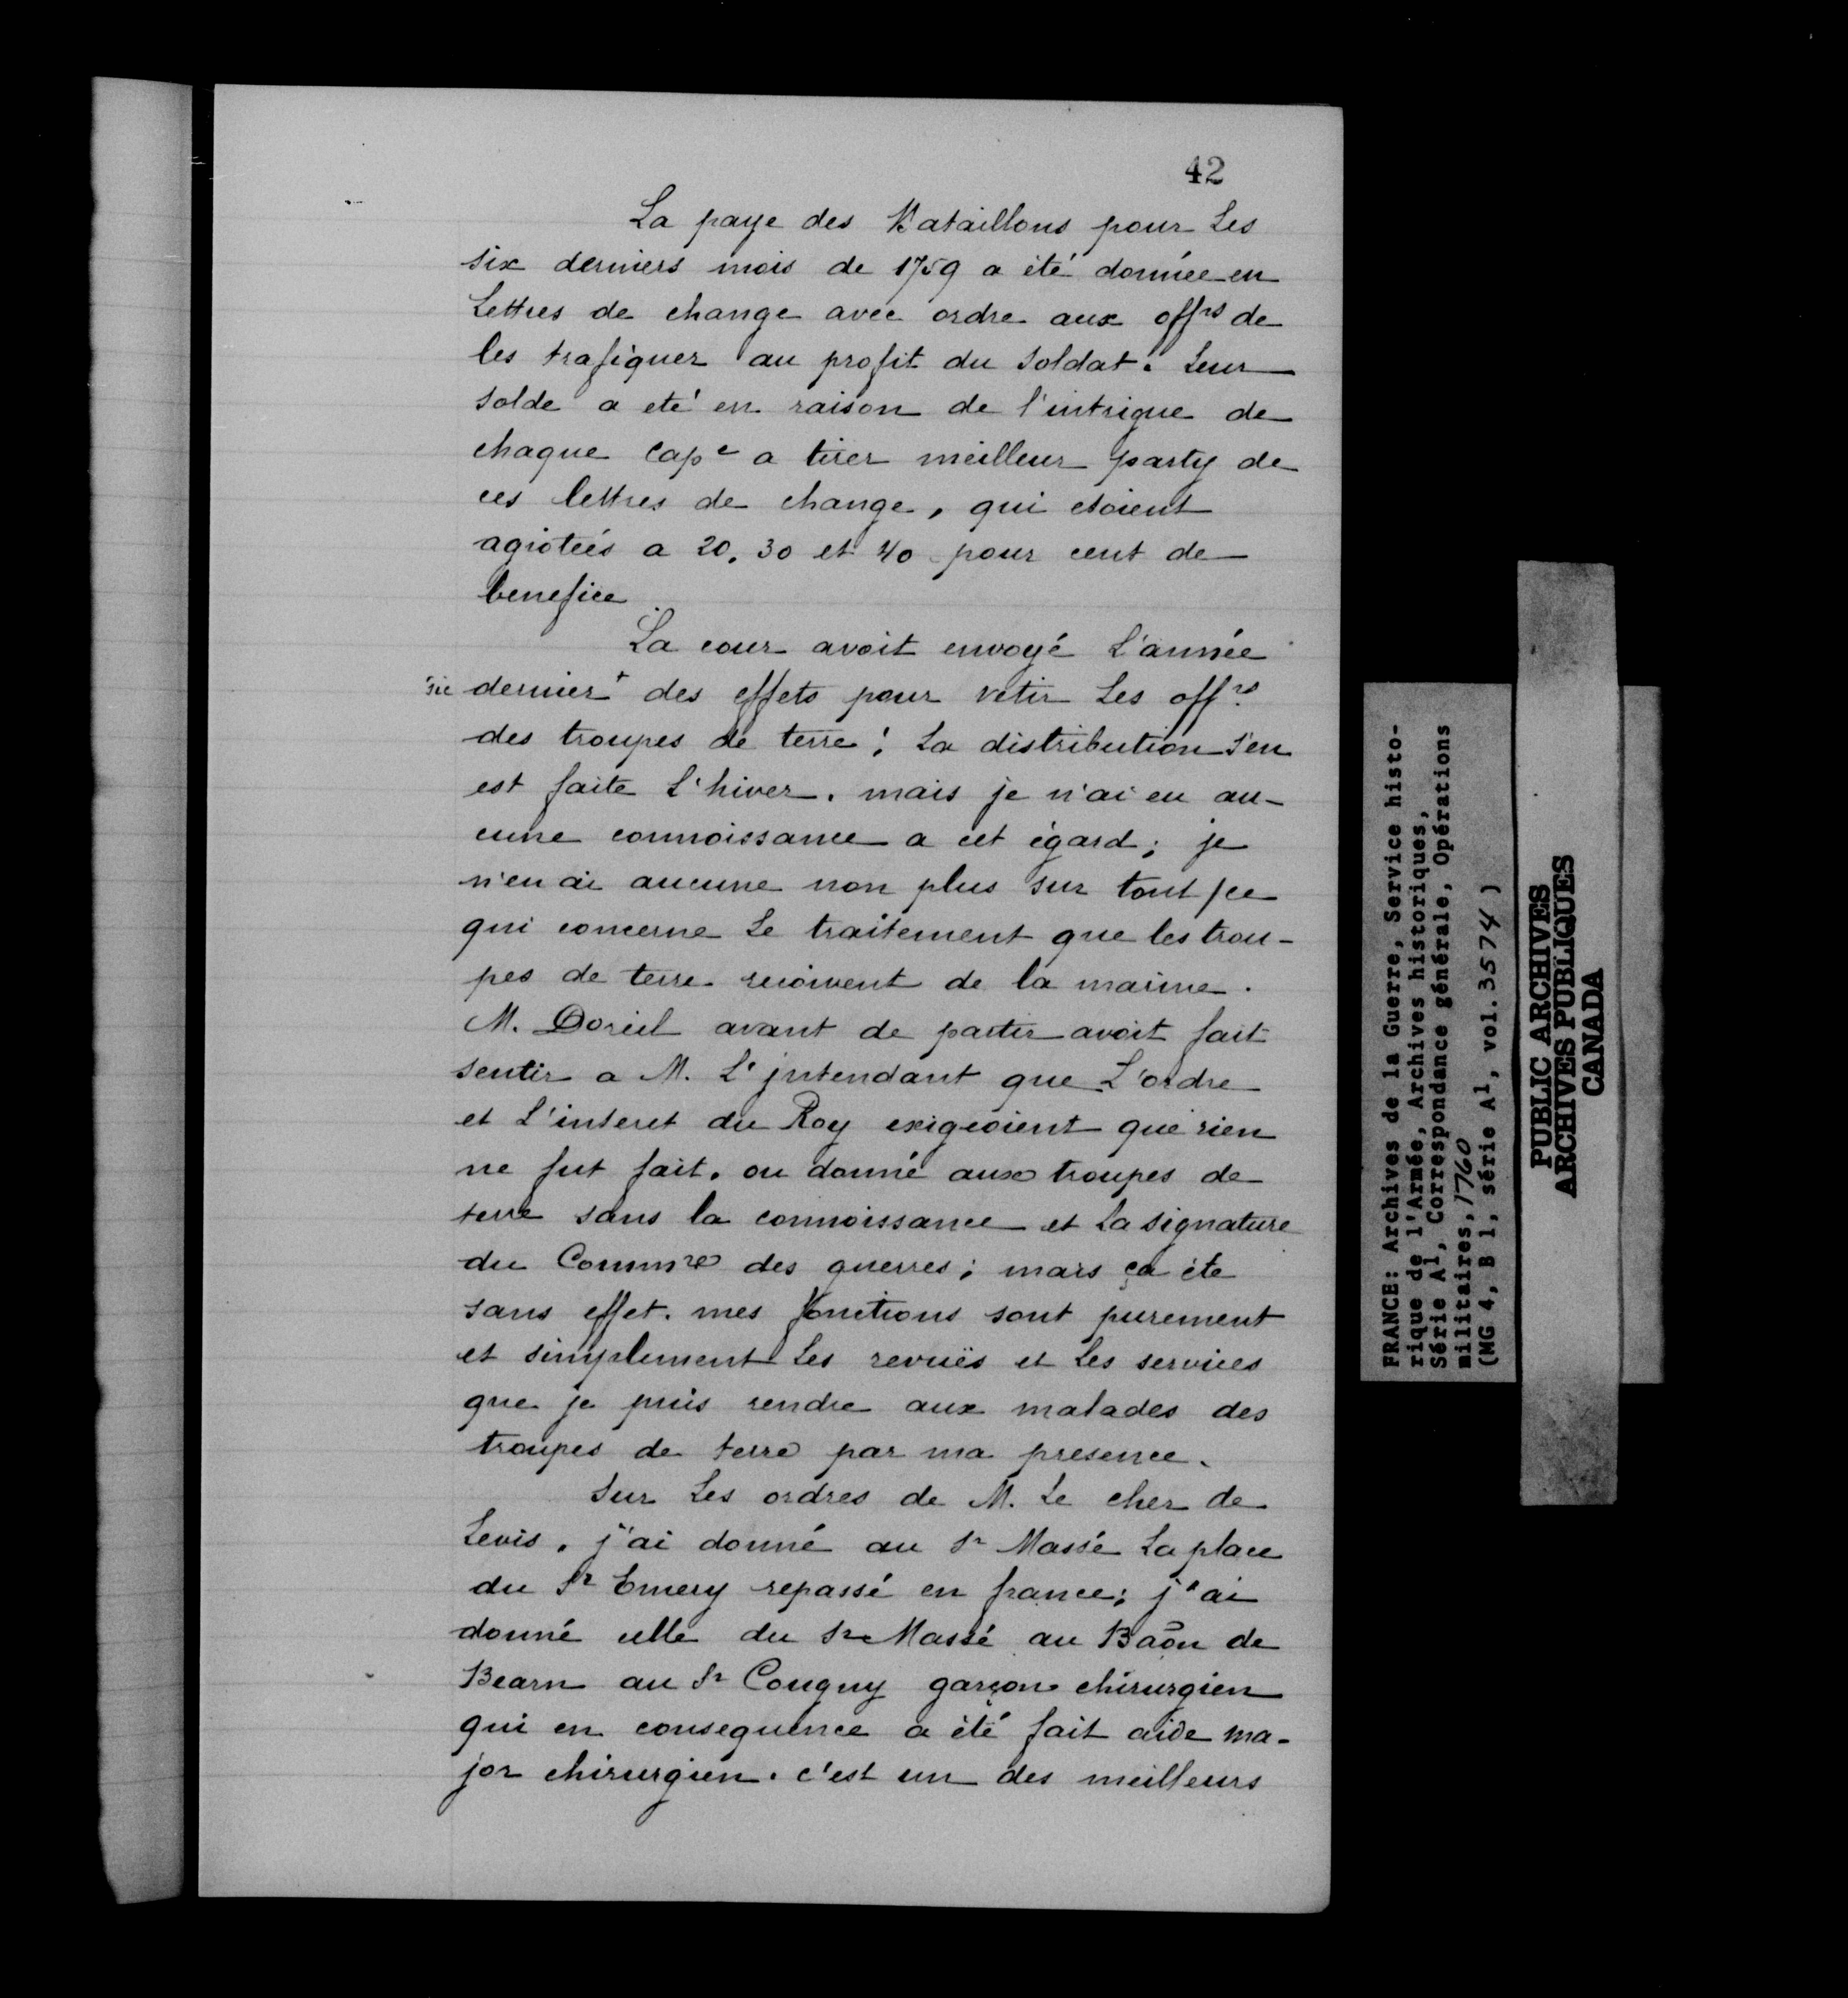 42
La paye des Bataillons pour Les
six derniers mois de 1759 a été donnée en
Lettres de change avec ordre aux offrs de
les trafiquer au profit du Soldat. Leur
solde a eté en raison de l'intrigue de
chaque cape a tirer meilleur party de
ces lettres de change, qui etoient
agiotées a 20, 30 et 40 pour cent de
benefice.
La cour avoit envoyé L'année
sic dernier+ des effets pour vetir Les offrs
des troupes de terre; La distribution s'en
est faite L'hiver. mais je n'ai eu au-
cune connoissance a cet égard; je
n'en ai aucune non plus sur tout ce
qui concerne Le traitement que les trou-
pes de terre recoivent de la marine.
M. Doreil avant de partir avoit fait
sentir a M. L'jntendant que L'ordre
et L'interet du Roy exigeoient que rien
ne fut fait, ou donné aux troupes de
terre sans la connoissance et La signature
du Commre des guerres; mais ça été
sans effet. mes fonctions sont purement
et simplement Les revuës et Les services
que je puis rendre aux malades des
troupes de terre par ma presence.
Sur Les ordres de M. Le cher de
Levis, j'ai donné au Sr Massé La place
du Sr Emery repassé en france; j'ai
donné celle du Sr Massé au Baōn de
Bearn au Sr Cougny garçon chirurgien
qui en consequence a été fait aide ma-
jor chirurgien. c'est un des meilleurs
FRANCE: Archives de la Guerre, Service histo-
rique de l'Armée, Archives historiques,
Série A1, Correspondance générale, Opérations
militaires, 1760
(MG 4, B 1, série A1, vol. 3574)
PUBLIC ARCHIVES
ARCHIVES PUBLIQUES
CANADA